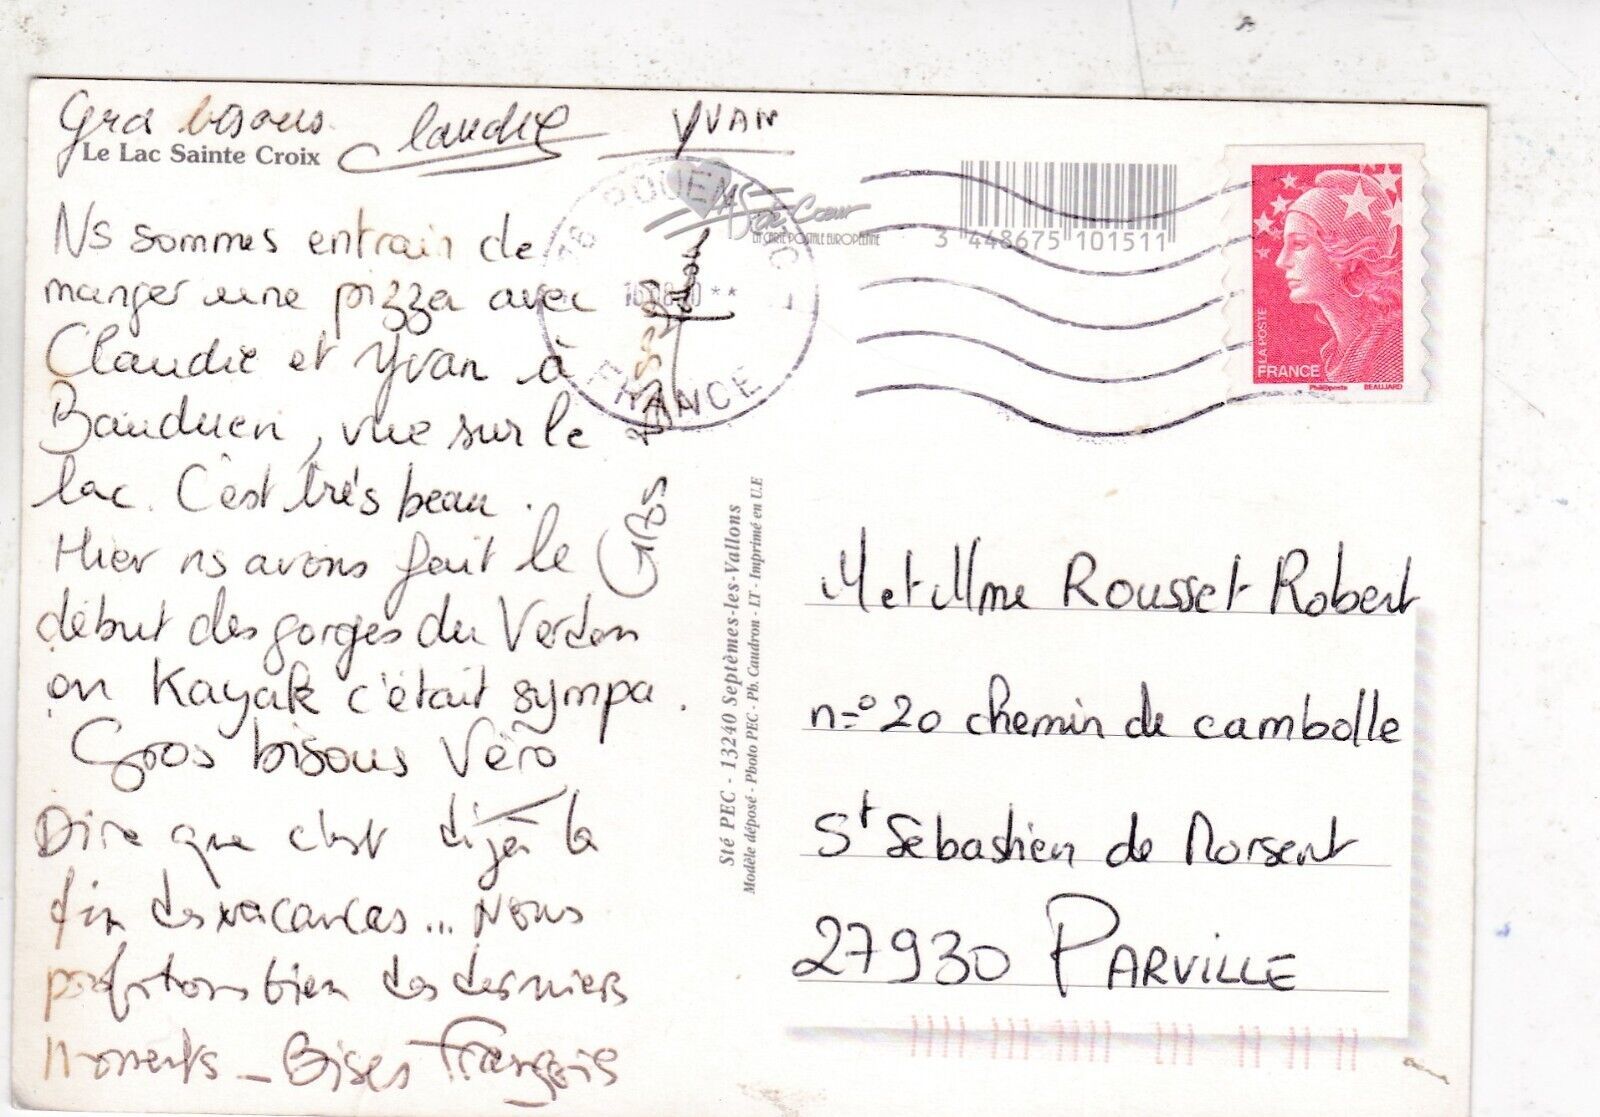 Gros bisous. Claudie YVAN
Le Lac Sainte Croix
Ns sommes entrain de
manger une pizza avec
Claudie et Yvan à
Bauduen, vue sur le
lac. C'est très beau.
Hier ns avons fait le
début des gorges du Verdon
en Kayak c'était sympa.
Gros bisous Véro
Dire que c'est déjà la
fin des vacances... Nous
profitons bien des derniers
moments - Bises Françoise
GROS BISOUS
Sté PEC - 13240 Septèmes-les-Vallons
Modèle déposé - Photo PEC - Ph. Caudron - LT - Imprimé en U.E
76 ROUEN CIC
16.08.10 **
FRANCE
MAS de Cœur
LA CARTE POSTALE EUROPÉENNE
3 448675 101511
LA POSTE
FRANCE
Phil@poste BEAUJARD
M et Mme Rousset Robert
n=°20 chemin de cambolle
St Sébastien de Morsent
27930 PARVILLE